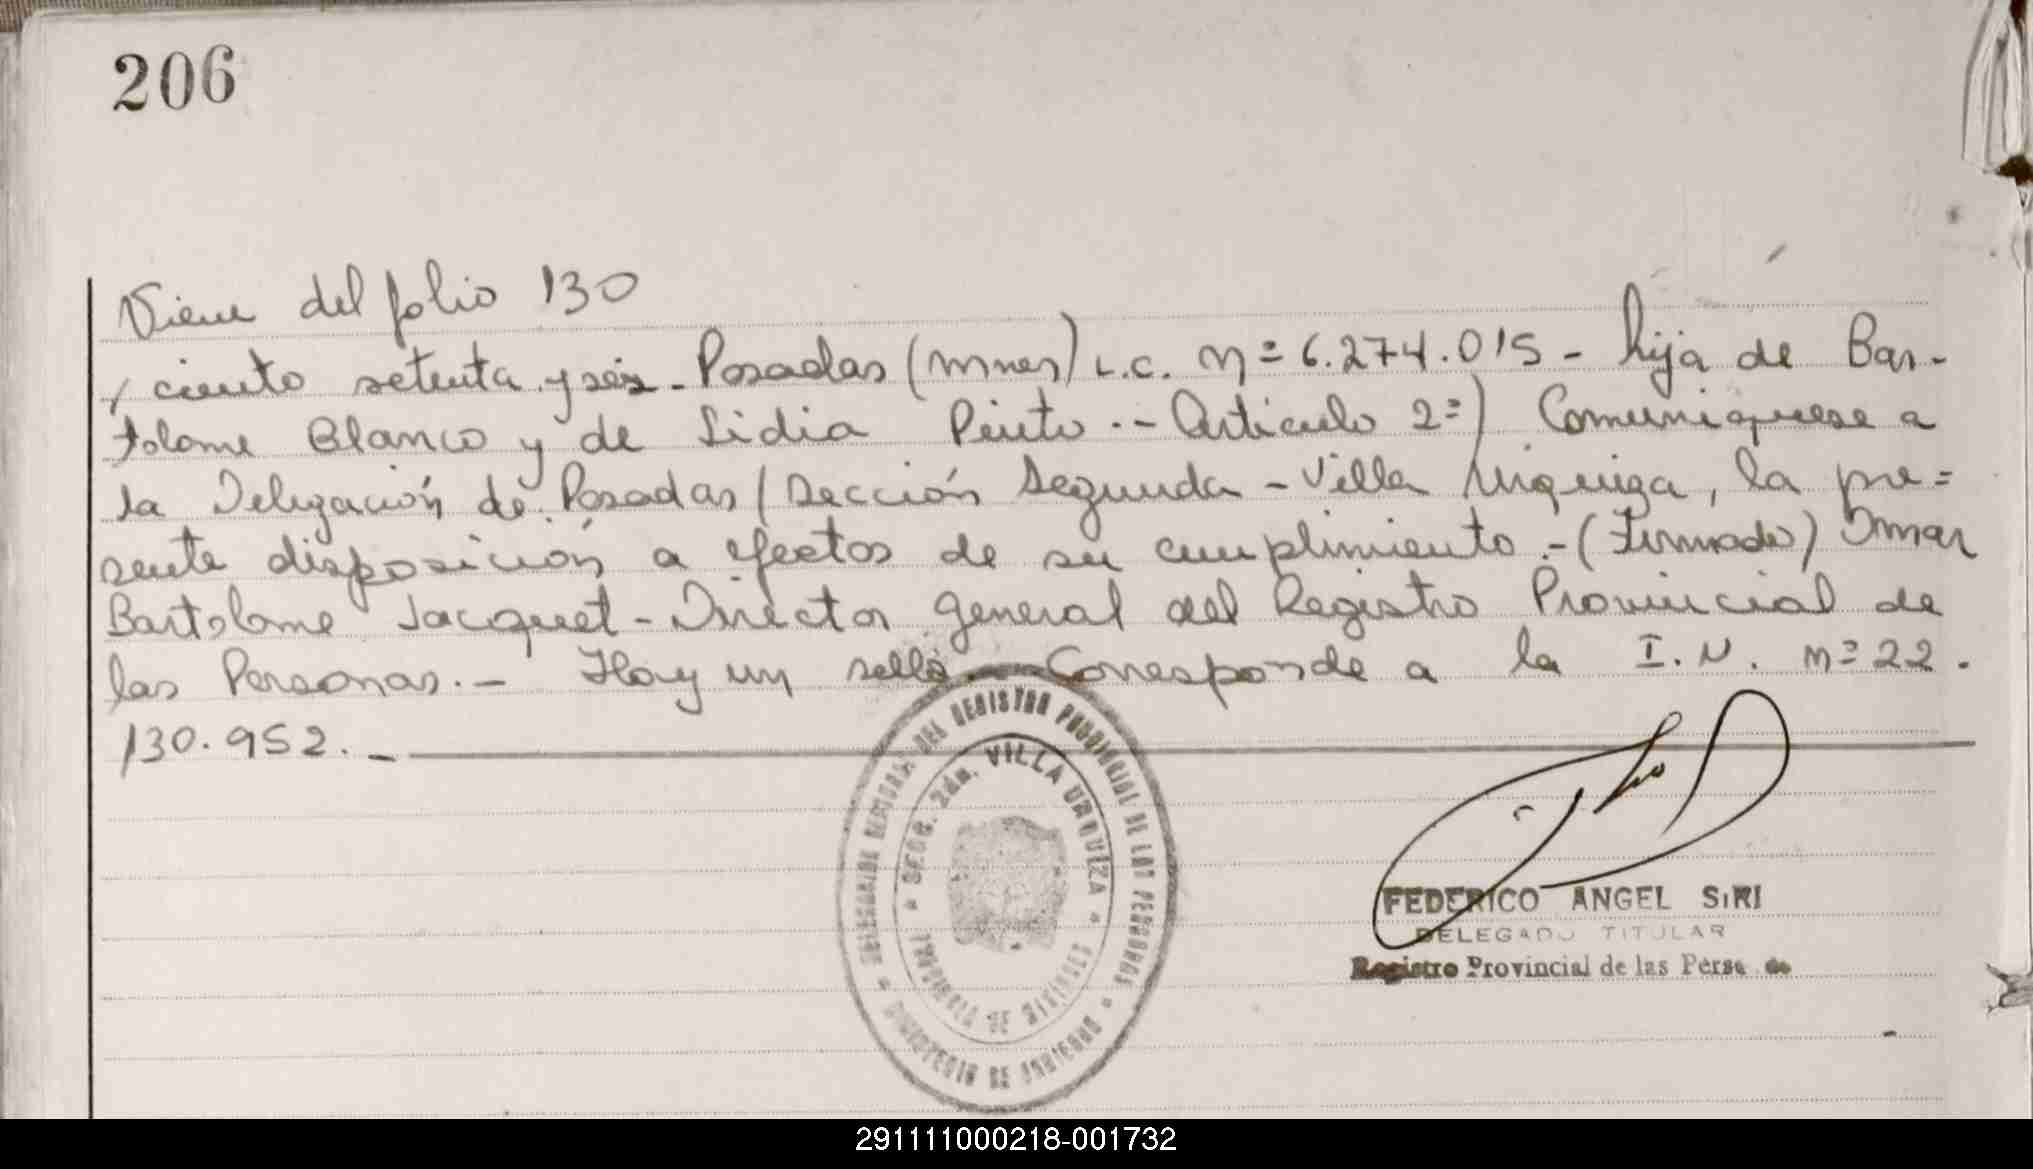 206
Viene del folio 130
/ ciento setenta y seis - Posadas (Mnes) L.C. Nº 6.274.015 - hija de Bar-
tolome Blanco y de Lidia Pinto .- Articulo 2º) Comuniquese a
la Delegación de Posadas / Sección Segunda - Villa Urquiza, la pre=
sente disposición a efectos de su cumplimiento .- (Firmado) Omar
Bartolome Jacquet - Director General del Registro Provincial de
las Personas. - Hay un sello - Corresponde a la I.N. nº 22.
130.952. -
DEL REGISTRO PROVINCIAL DE LAS PERSONAS
* SECC. 2da. VILLA URQUIZA *
PROVINCIA DE MISIONES
* MINISTERIO DE GOBIERNO *
FEDERICO ANGEL SIRI
DELEGADO TITULAR
Registro Provincial de las
291111000218-001732